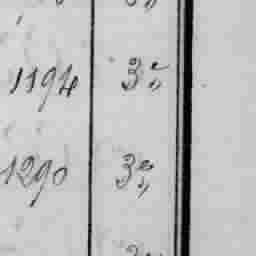 1194 3e „
1290 3e „